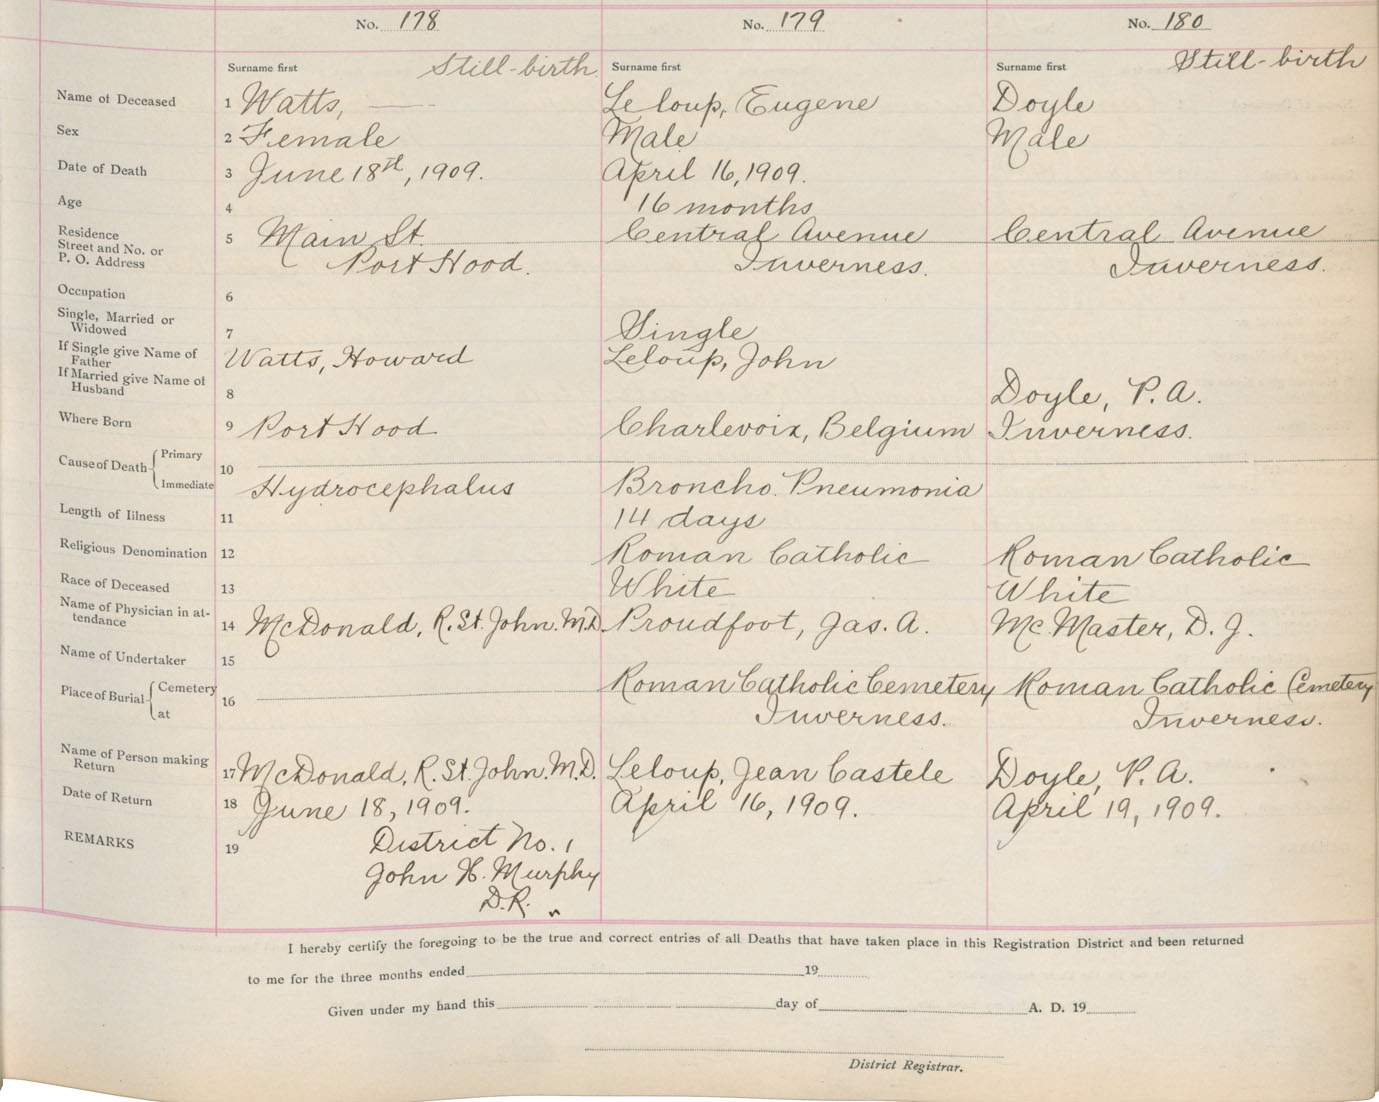 No. 178 No. 179 No. 180
Surname first Still-birth Surname first Surname first Still-birth
Name of Deceased 1 Watts, Leloup, Eugene Doyle
Sex 2 Female Male Male
Date of Death 3 June 18th, 1909. April 16, 1909.
Age 4 16 months
Residence
Street and No. or 5 Main St. Central Avenue Central Avenue
P. O. Address Port Hood. Inverness. Inverness.
Occupation 6
Single, Married or
Widowed 7 Single
If Single give Name of Watts, Howard Leloup, John
Father
If Married give Name of
Husband 8 Doyle, P. A.
Where Born 9 Port Hood Charlevoix, Belgium Inverness.
Cause of Death Primary
10
Immediate Hydrocephalus Broncho. Pneumonia
Length of Illness 11 14 days
Religious Denomination 12 Roman Catholic Roman Catholic
Race of Deceased 13 White White
Name of Physician in at-
tendance 14 McDonald, R. St. John. M.D. Proudfoot, Jas. A. McMaster, D. J.
Name of Undertaker 15
Place of Burial Cemetery 16 Roman Catholic Cemetery Roman Catholic Cemetery
at Inverness. Inverness.
Name of Person making
Return 17 McDonald, R. St. John. M.D. Leloup, Jean Castele Doyle, P. A.
Date of Return 18 June 18, 1909. April 16, 1909. April 19, 1909.
REMARKS 19 District No. 1
John H. Murphy
D.R.
I hereby certify the foregoing to be the true and correct entries of all Deaths that have taken place in this Registration District and been returned
to me for the three months ended 19
Given under my hand this day of A. D. 19
District Registrar.